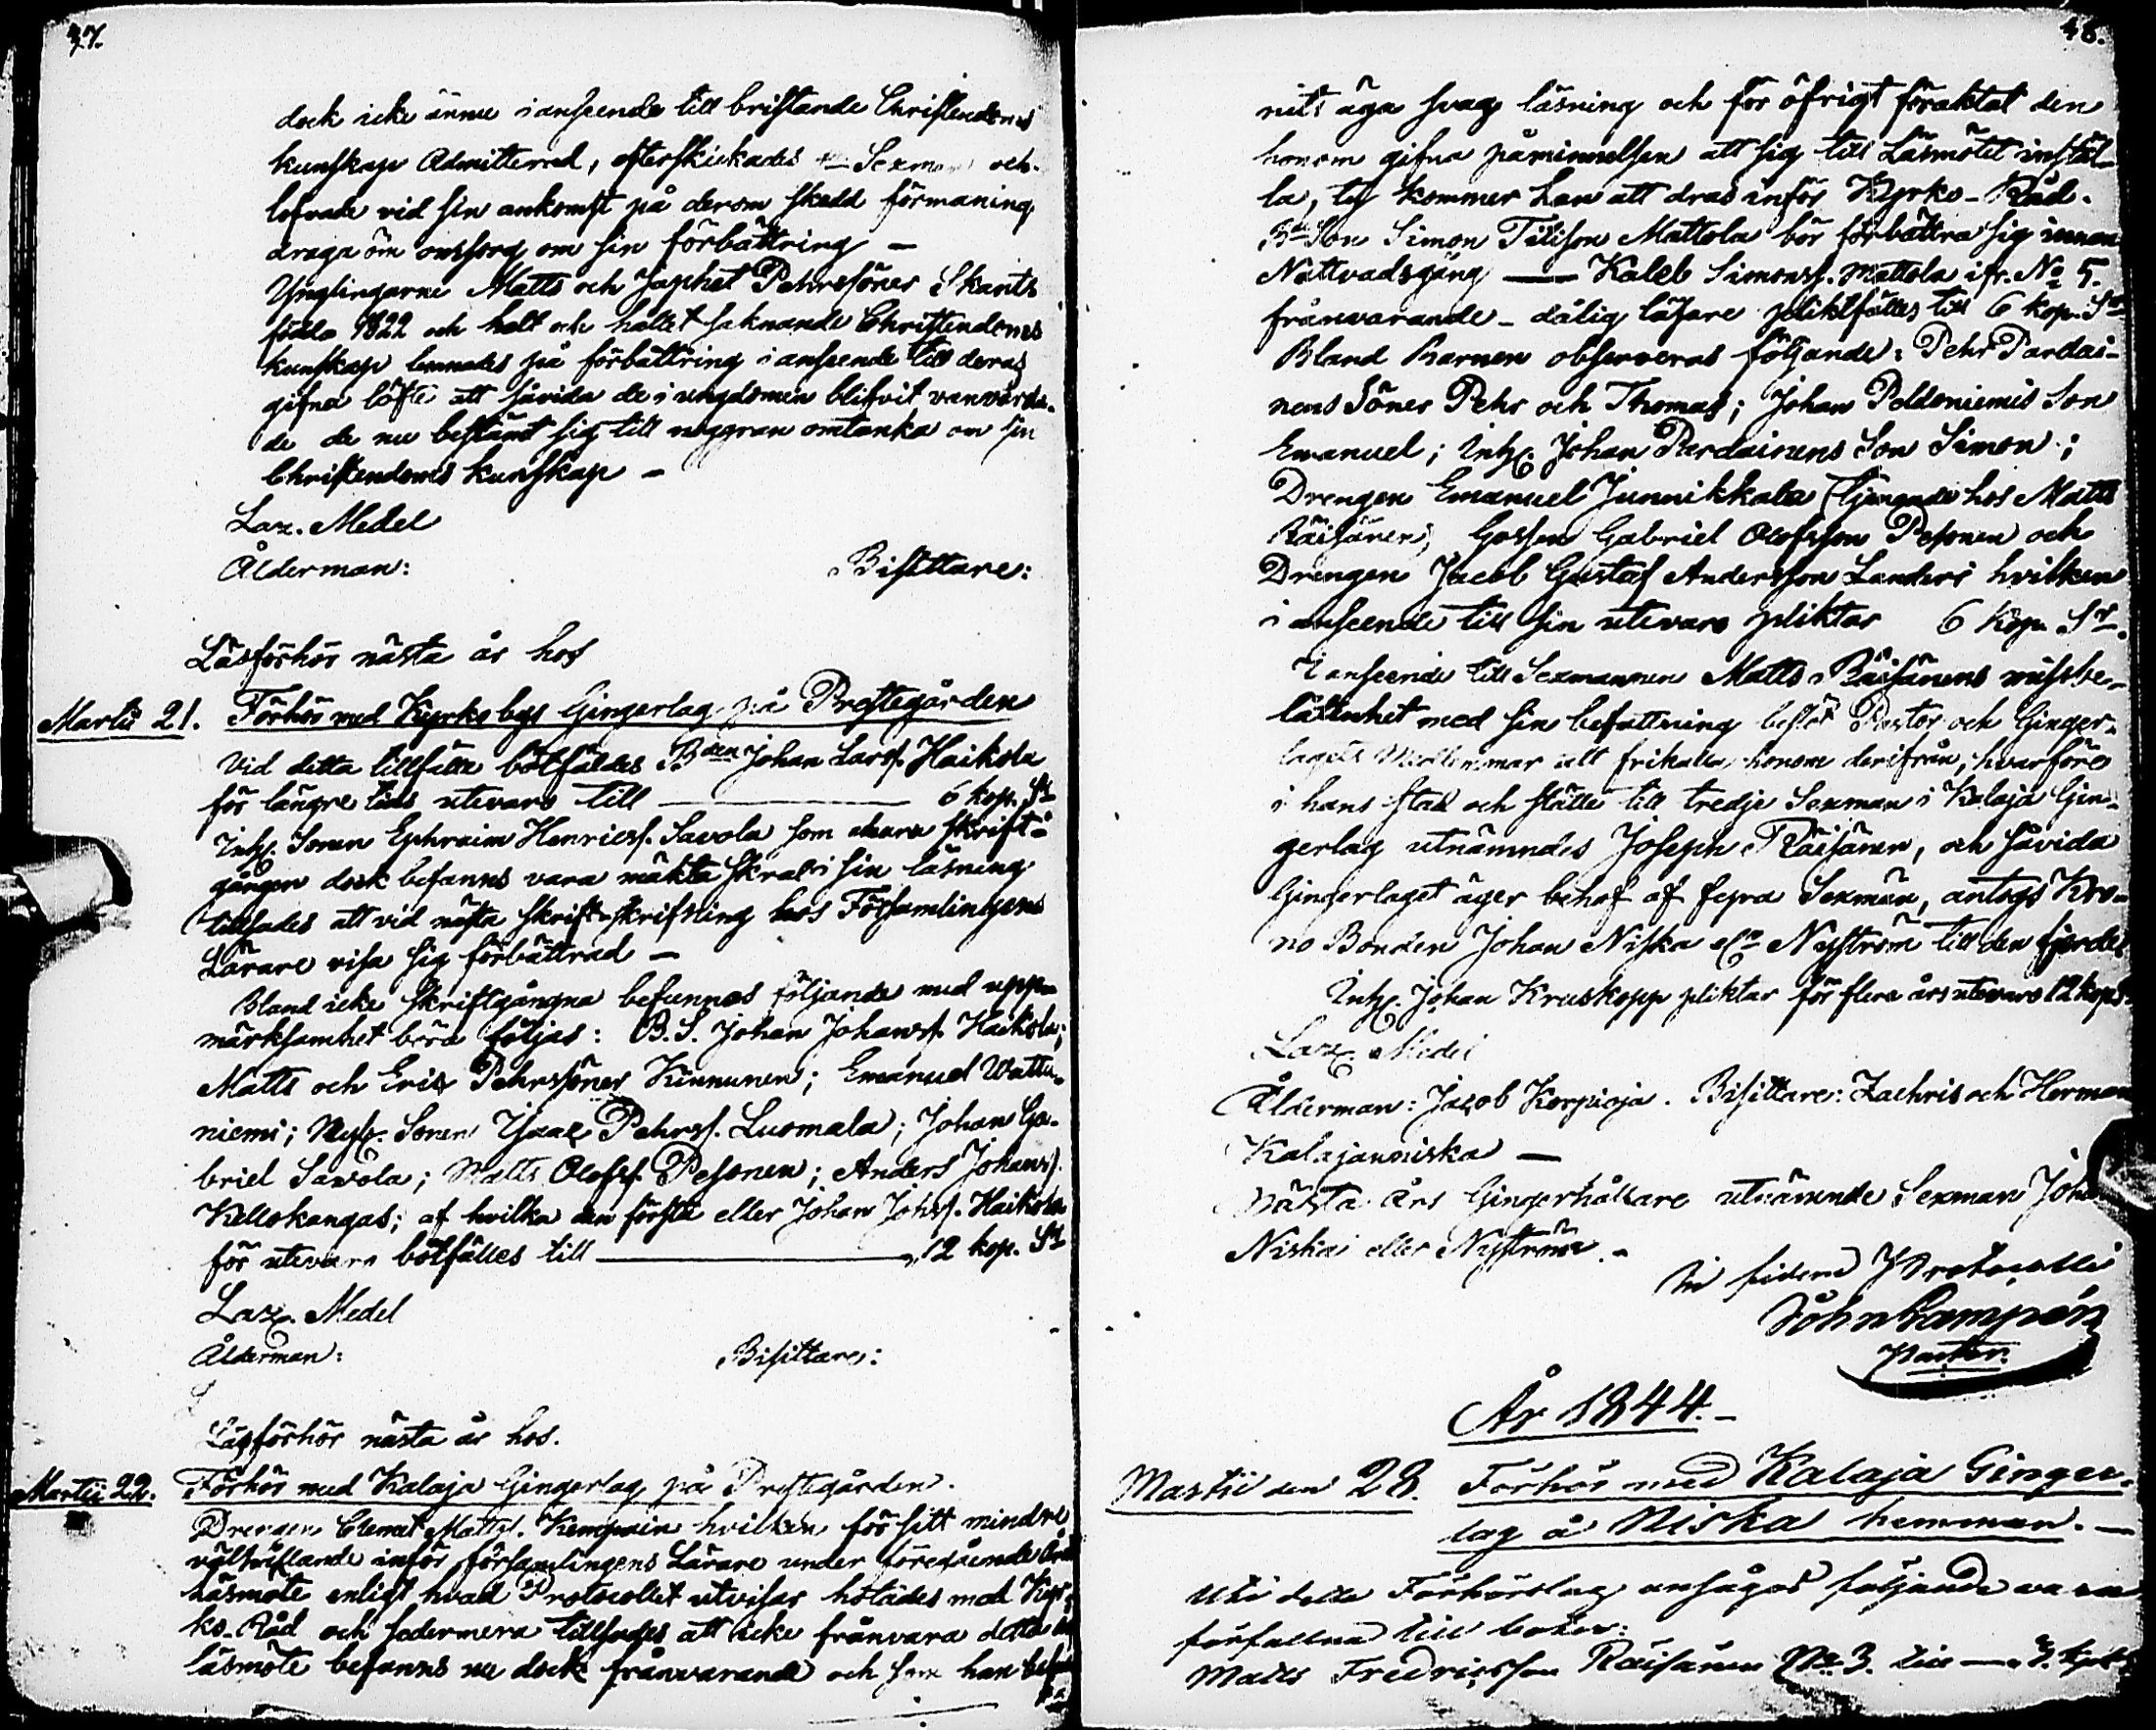 47.
dock icke ännu i anseende till bristande Christendoms
kunskap Admitterad, efterskickades Sexman och
lofvade vid sin ankomst på derom skedd förmaning
draga öm omsorg om sin förbättring —
Ynglingarne Matts och Japhet Pehrssöner Skants
födda 1822 och halt och hållet saknande Christendoms
kunskap lemnades på förbättring i anseende till deras
gifna löfte att såvida de i ungdomen blifvit vanvårda-
de de nu bestämt sig till noggran omtanka om sin
Christendoms kunskap —
Laz. Medel
Ålderman: Bisittare:
Läsförhör nästa år hos
Martii 21. Förhör med Kyrkoby Gingerlag på Prestegården
Vid detta tillfälle bötfäldes Bden Johan Larss. Haikola
för längre tids utevaro till — 6 kop. Sr
Inh. Sonen Ephraim Henricss. Savola som skrift-
gången dock befanns vara mäkta skral i sin läsning
tillsades att vid nästa skrift-skrifning hos Församlingens
Lärare visa sig förbättrad —
Bland icke skriftgångna befunnos följande med upp-
märksamhet böra följas: B. S. Johan Johanss. Haikola;
Matts och Eric Pehrssöner Kinnunen; Emanuel Wattu-
niemi; Nyb. Sonen Isaac Pehrss. Luomala; Johan Ga-
briel Savola; Matts Olofss. Pesonen; Anders Johanss.
Kellokangas; af hvilka den första eller Johan Johss. Haikola
för utevaro bötfälles till — 12 kop. Sr
Laz. Medel
Ålderman: Bisittare:
Läsförhör nästa år hos.
Martii 22. Förhör med Kalaja Gingerlag på Prestegården.
Drengen Clemet Mattss. Kempain hvilken för sitt mindre
inför församlingens Lärare under föregående års
läsmöte enligt hvad Protocollet utvisar hotades med Kyr-
ko-Råd och sedermera tillsades att icke frånvara detta års
läsmöte befanns nu dock frånvarande och som han
48.
nits äga svag läsning och för öfrigt föraktat den
honom gifna påminnelsen att sig till Läsmötet instäl-
la, ty kommer han att dras inför Kyrko-Råd.
Bde Son Simon Mattola bör förbättra sig innan
Nattvadsgång — Kaleb Simonss. Mattola ifr. No 5.
frånvarande - dålig läsare pliktfälles till 6 kop. Sr
Bland Barnen observeras följande: Pehr Pardai-
nens Söner Pehr och Thomas; Johan Peldoniemis Son
Emanuel; Inh. Johan Pardainens Son Simon;
Drengen Emanuel Junnikkala (tjenande hos Matts
Räisänen) Gossen Gabriel Olofsson Pesonen och
Drengen Jacob Gustaf Andersson Landers hvilken
i anseende till sin utevaro pliktar 6 Kop. Sr.
I anseende till Sexmannen Matts Räisänens missbe-
låtenhet med sin befattning beslöt Pastor och Ginger-
lagets Medlemmar att frikalla honom derifrån, hvarföre
i hans stad och ställe till tredje Sexman i Kalaja Gin-
gerlag utnämndes Joseph Räisänen, och såvida
Gingerlaget äger behof af fyra Sexmän, antogs Kro-
no Bonden Johan Niska elr Nyström till den fjerde
Inh. Johan Kruskopp pliktar för flera års utevaro 12 kop.
Laz. Medel
Ålderman: Jacob Korpioja. Bisittare: Zachris och Herman
Kalajanniska —
Nästa års Gingerhållare utnämnde Sexman Johan
Niska eller Nyström. -
In fidem Protocolli
Pastor.
År 1844. -
Martii den 28. Förhör med Kalaja Ginger-
lag å Niska hemman. —
Uti detta Förhörslag ansågos följande vara
förfallna till böter:
Matts Fredricsson Räisänen No 3. till — 3. kop.